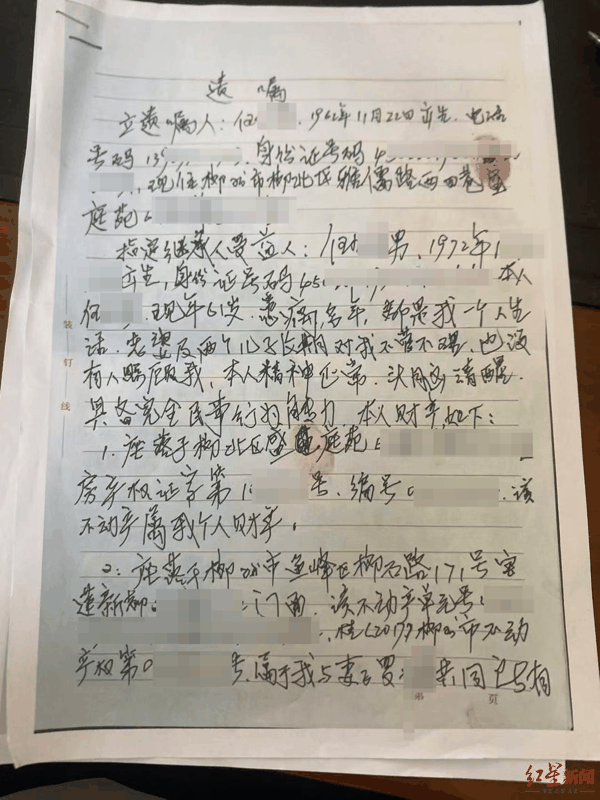 遗嘱
立遗嘱人：任 1962年11月22日出生，电话
号码13 ，身份证号码4
，现住柳州市柳北区雅儒路西四巷盛
庭苑
指定继承人受益人：任 男，1972年1
出生，身份证号码45 本人
任 ，现年61岁，患病多年，都是我一个人生
活，老婆及两个儿子长期对我不管不理，也没
有人照顾我，本人精神正常，头脑清醒，
具备完全民事行为能力，本人财产如下：
1、座落于柳北区盛庭苑
房产权证字第1 号，编号0 ，该
不动产属我个人财产。
2、座落于柳州市鱼峰区柳石路171号
造新 门面，该不动产单元号
，桂（2017）柳州市不动
产权第0 号，属于我与妻子罗 共同
装订线
第 页
红星新闻